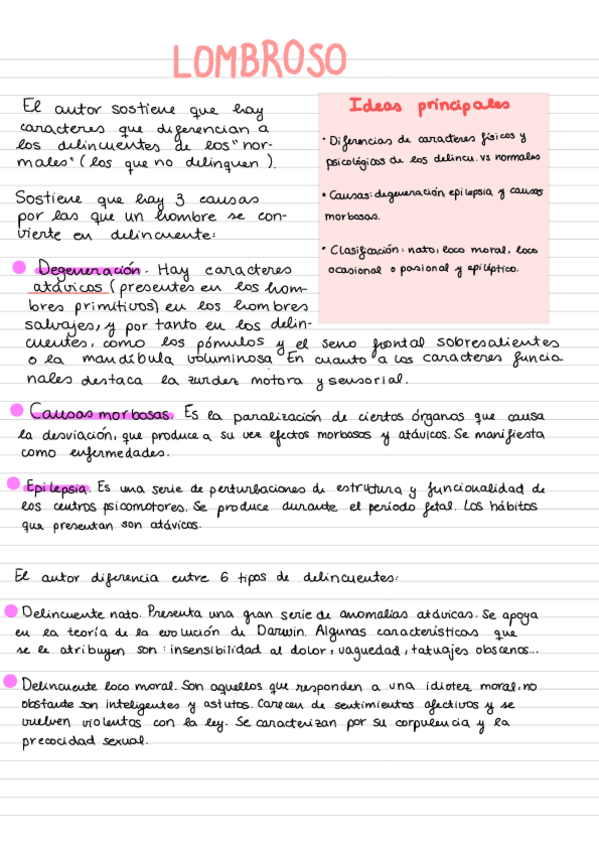 LOMBROSO
El autor sostiene que hay
caracteres que diferencian a
los delincuentes de los "nor-
males" (los que no delinquen).
Sostiene que hay 3 causas
por las que un hombre se con-
vierte en delincuente:
Ideas principales
· Diferencias de caracteres físicos y
psicológicos de los delincu. vs normales
· Causas: degeneración, epilepsia y causas
morbosas.
· Clasificación: nato, loco moral, loco
ocasional o pasional y epiléptico.
Degeneración. Hay caracteres
atávicos (presentes en los hom-
bres primitivos) en los hombres
salvajes, y por tanto en los delin-
cuentes, como los pómulos y el seno frontal sobresalientes
o la mandíbula voluminosa. En cuanto a los caracteres funcio
nales destaca la zurdez motora y sensorial.
Causas morbosas. Es la paralización de ciertos órganos que causa
la desviación, que produce a su vez efectos morbosos y atávicos. Se manifiesta
como enfermedades.
Epilepsia. Es una serie de perturbaciones de estructura y funcionalidad de
los centros psicomotores. Se produce durante el periodo fetal. Los hábitos
que presentan son atávicos.
El autor diferencia entre 6 tipos de delincuentes:
Delincuente nato. Presenta una gran serie de anomalías atávicas. Se apoya
en la teoría de la evolución de Darwin. Algunas características que
se le atribuyen son: insensibilidad al dolor, vaguedad, tatuajes obscenos...
Delincuente loco moral. Son aquellos que responden a una idiotez moral, no
obstante son inteligentes y astutos. Carecen de sentimientos afectivos y se
vuelven violentos con la ley. Se caracterizan por su corpulencia y la
precocidad sexual.